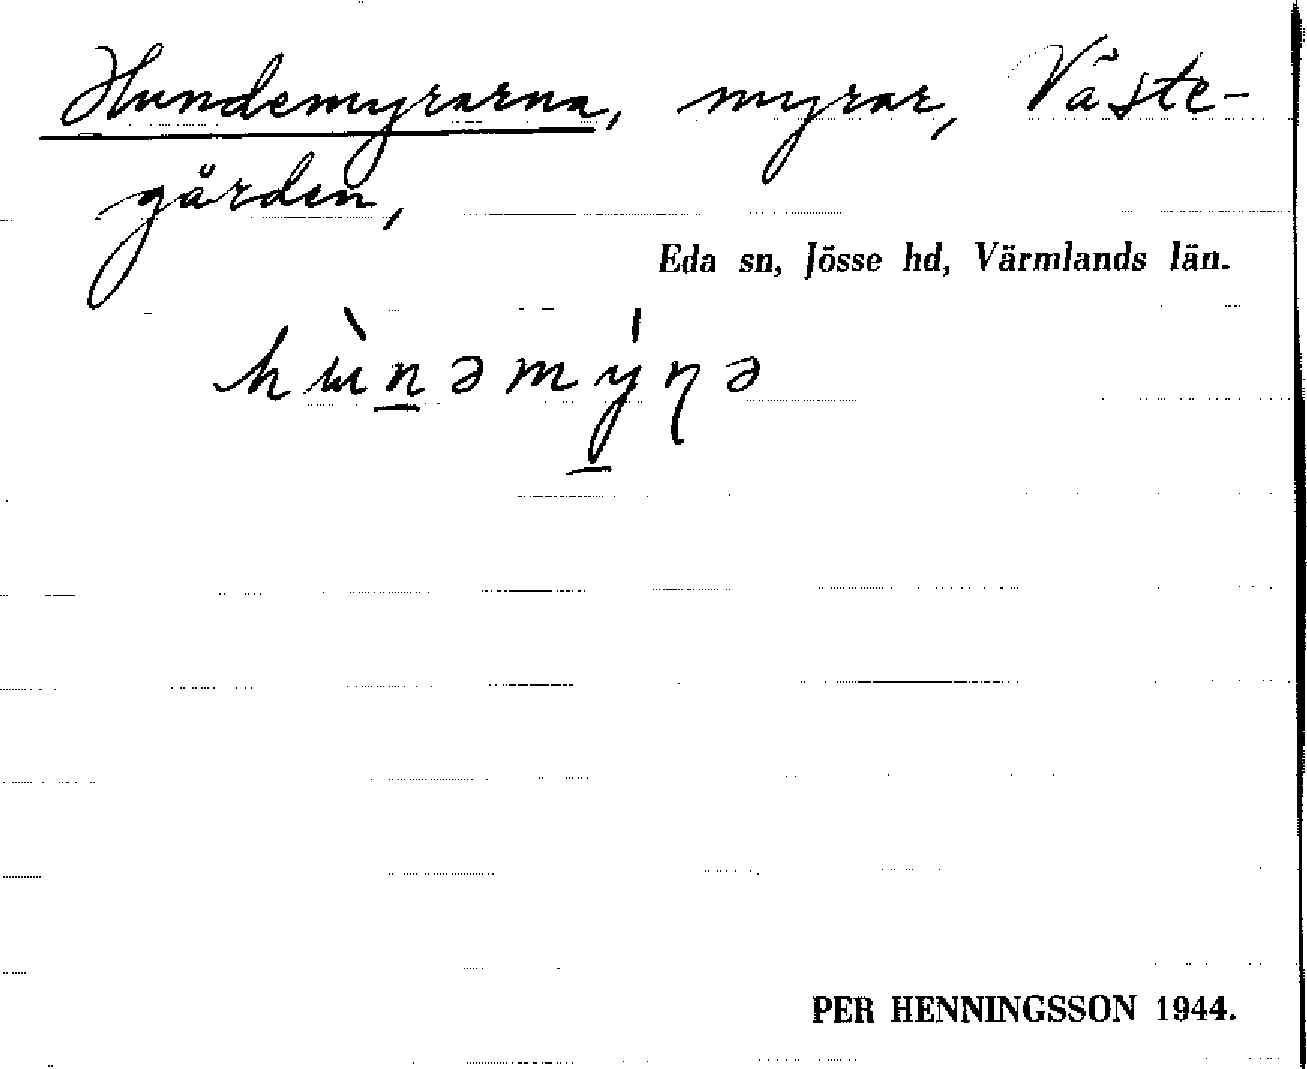 Hundemyrarna, myrar, Väste-
gården,
Eda sn, Jösse hd, Värmlands län.
hɯ̀n̲əmý̲ɳə
PER HENNINGSSON 1944.